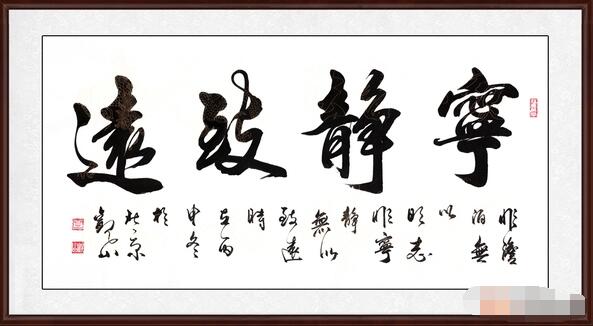 寧靜致遠
非澹
泊無
以
明志
非寧
靜
無以
致遠
時
在丙
申冬
於
北京